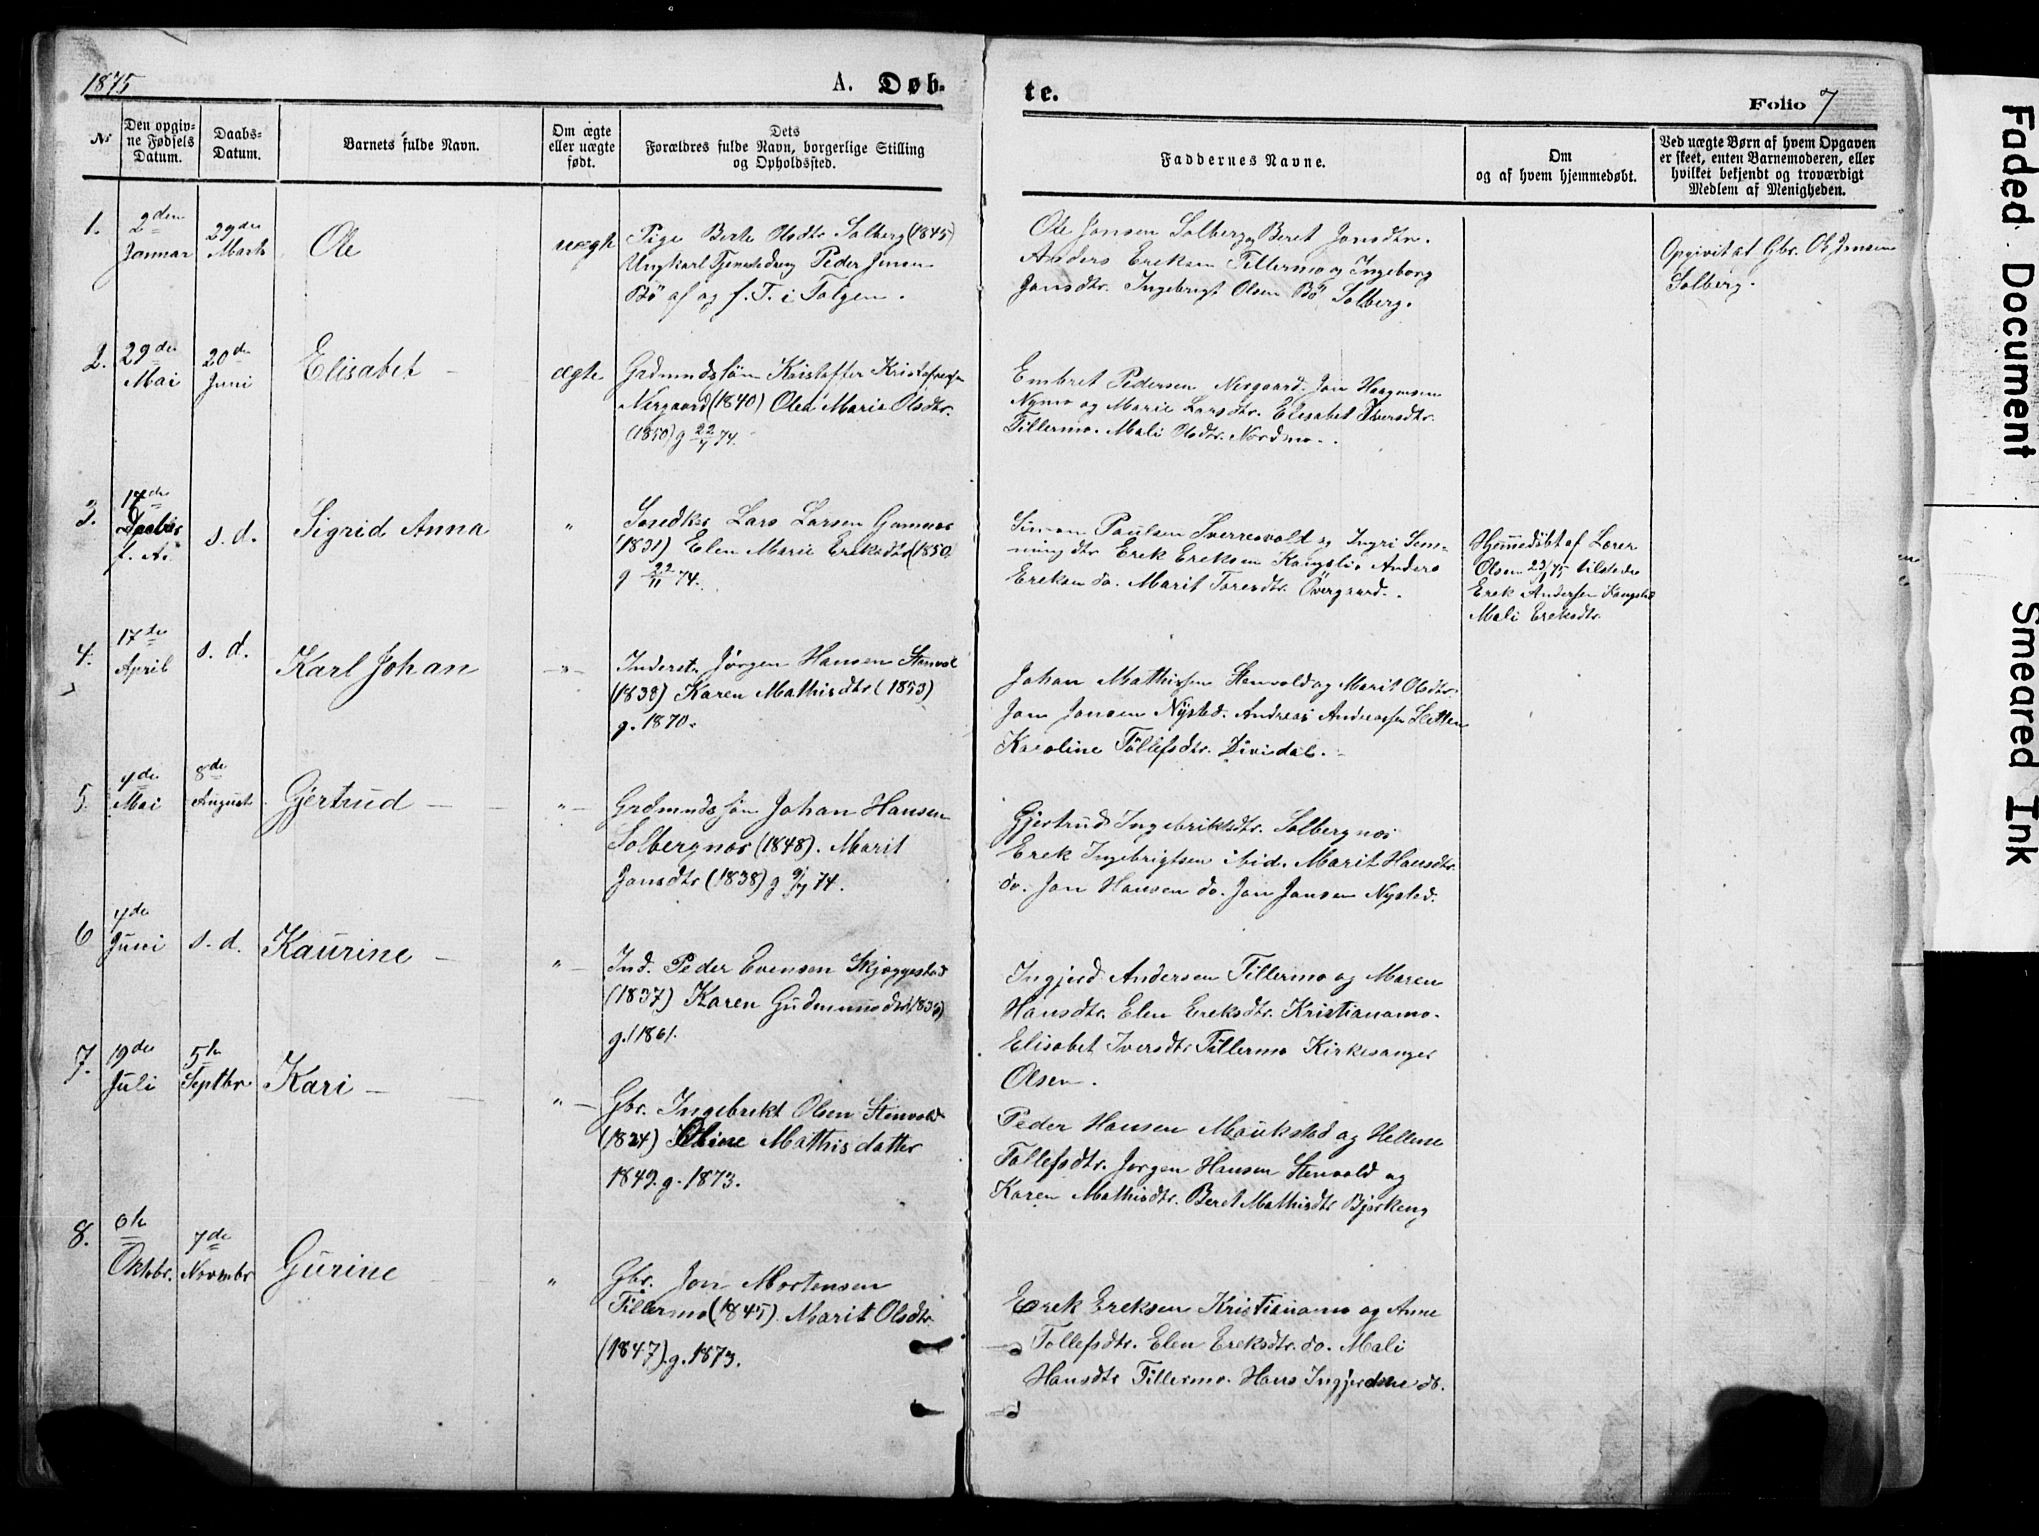 1875
A. Døb-
te.
Folio 7
Nr
Den opgiv-
ne Fødsels
Datum.
Daabs-
Datum.
Barnets fulde Navn.
Om ægte
eller uægte
født.
Dets
Forældres fulde Navn, borgerlige Stilling
og Opholdssted.
Faddernes Navne.
Om
og af hvem hjemmedøbt.
Ved uægte Børn af hvem Opgaven
er skeet, enten Barnemoderen, eller
hvilket bekjendt og troværdigt
Medlem af Menigheden.
1.
2den
Januar
29de
Marts
Ole
uægte
Pige Berte Olsdtr Solberg (1845)
Ungkarl Tjenestedreng Peder Jensen
Bö af og f. T. i Tolgen.
Ole Jonsen Solberg og Beret Jonsdtr.
Anders Ereksen Tillermo og Ingeborg
Jonsdtr. Ingebrigt Olsen Bö Solberg.
Opgivit af Gbr. Ole Jonsen
Solberg.
2.
29de
Mai
20de
Juni
Elisabet
ægte
Grdmandssön Kristoffer Kristofersen
Nergaard (1840) Olea Marie Olsdtr.
(1850) g 22/7 74.
Embret Pedersen Nergaard. Jon Haagensen
Nymo og Marie Larsdtr. Elisabet Iversdtr.
Tillermo. Mali Olsdtr. Nordmo.
3.
17de
f. A.
s. d.
Sigrid Anna
"
Lars Larsen
(1831) Elen Marie Ereksdtr (1850)
g 22/11 74.
Simon Paulsen Sverresvold og Ingri Sem-
mingdtr Erek Ereksen Kongsli. Anders
Ereksen do. Marit Toresdtr. Övergaard.
Hjemmedöbt af Lærer
Olsen 23/1 75 tilstede
Erek Andersen
Mali Ereksdtr.
4.
17de
April
s. d.
Karl Johan
"
Inderst. Jörgen Hansen Stenvol
(1838) Karen Mathisdtr (1853)
g. 1870.
Johan Mathissen Stenvold og Marit Olsdtr.
Jon Jonsen Nysted. Andreas Andreassen Sletten
Karoline Töllefsdtr. Dividal.
5.
4de
Mai
8de
August
Gjertrud
"
Grdmandssön Johan Hansen
Solbergnæs (1848). Marit
Jonsdtr (1838) g 9/7 74.
Gjertrud Ingebriktsdtr. Solbergnæs
Erek Ingebrigtsen ibid. Marit Hansdtr.
do. Jon Hansen do. Jon Jonsen Nysted.
6
4de
Juni
s. d.
Kaurine
"
Ind. Peder Evensen Skjæggestad
(1837) Karen Gudmundsdtr (1836)
g. 1861.
Ingjerd Andersen Tillermo og Maren
Hansdtr. Elen Ereksdtr. Kristianamo.
Elisabet Iversdtr Tillermo Kirkesanger
Olsen.
7.
19de
Juli
5te
Septbr
Kari
"
Gbr. Ingebrekt Olsen Stenvold
(1824) Mathisdatter
1849. g. 1873.
Peder Hansen Moukstad og Hellene
Tollefsdtr. Jorgen Hansen Stenvold og
Karen Mathisdtr. Beret Mathisdtr Björkeng
8.
6te
Oktobr.
7de
Novembr
Gurine
"
Gbr. Jon Mortensen
Tillermo (1845) Marit Olsdtr.
(1847). g. 1873.
Erek Ereksen Kristianamo og Anne
Tollefsdtr. Elen Ereksdtr. do. Mali
Hansdtr Tillermo. Hans Ingjerdsen do.
Faded Document
Smeared Ink